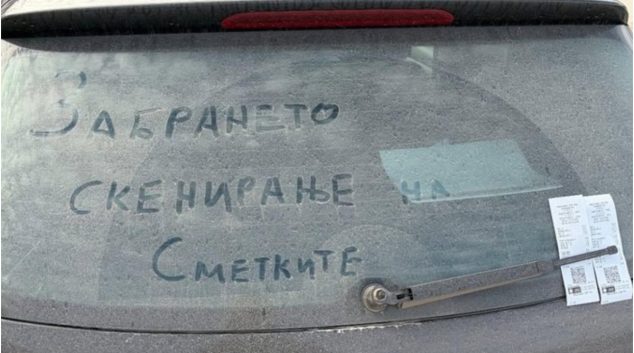 ЗАБРАНЕТО
СКЕНИРАЊЕ НА
СМЕТКИТЕ